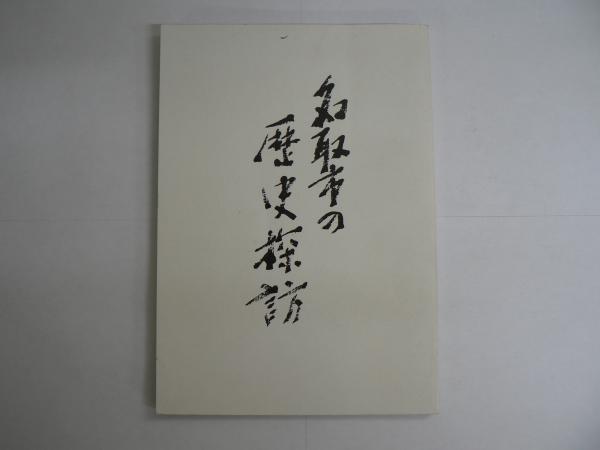 名取市の
歴史探訪